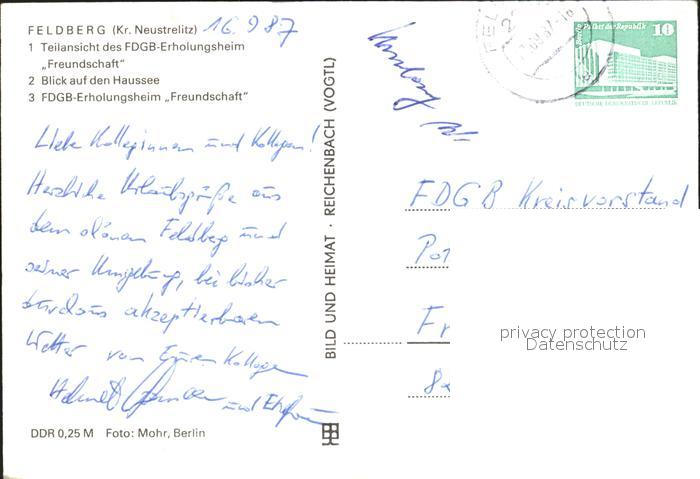 FELDBERG (Kr. Neustrelitz) 16.9.87
1 Teilansicht des FDGB-Erholungsheim
„Freundschaft“
2 Blick auf den Haussee
3 FDGB-Erholungsheim „Freundschaft“
Liebe Kolleginnen und Kollegen!
Herzliche Urlaubsgrüße aus
dem schönen Feldberg und
seiner Umgebung, bei bisher
durchaus akzeptierbarem
Wetter von Eurem Kollegen
Helmut und Ehefrau
DDR 0,25 M Foto: Mohr, Berlin
BILD UND HEIMAT · REICHENBACH (VOGTL)
Berlin, Palast der Republik 10
DEUTSCHE DEMOKRATISCHE REPUBLIK
FDGB Kreisvorstand
Fr
privacy protection
Datenschutz